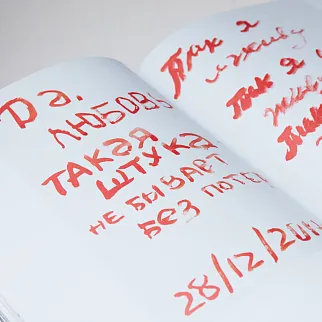 Да,
ЛЮБОВЬ
ТАКАЯ
ШТУКА
НЕ БЫВАЕТ
БЕЗ ПОТЕР
28/12/2011
Так я
и живу
Так я
живу
Так